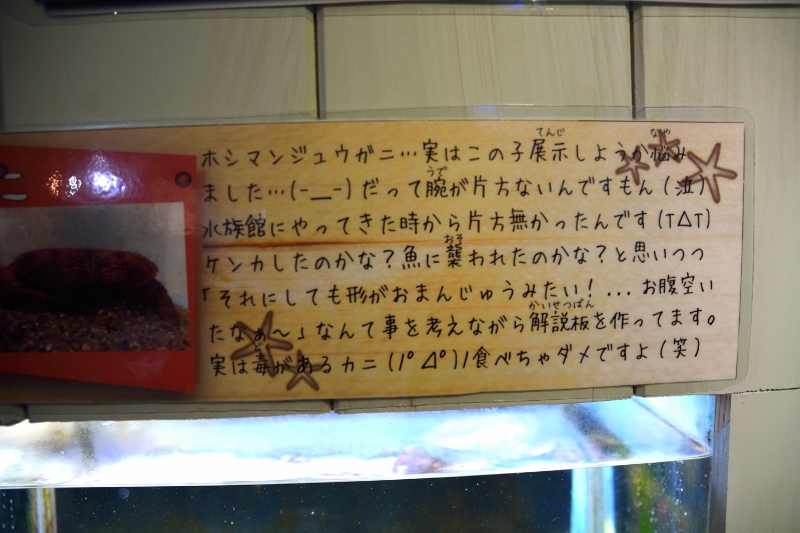 ホシマンジュウガニ…実はこの子展示しようか悩み
ました…(-__-) だって腕が片方ないんですもん (泣)
水族館にやってきた時から片方無かったんです (T△T)
ケンカしたのかな?魚に襲われたのかな?と思いつつ
「それにしても形がおまんじゅうみたい! ... お腹空い
たなぁ〜」なんて事を考えながら解説板を作ってます。
実は毒があるカニ (ノ゚Д゚)ノ食べちゃダメですよ (笑)